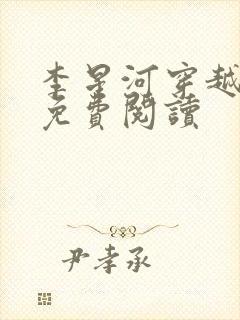 李星河穿越
免費閱讀
尹孝承